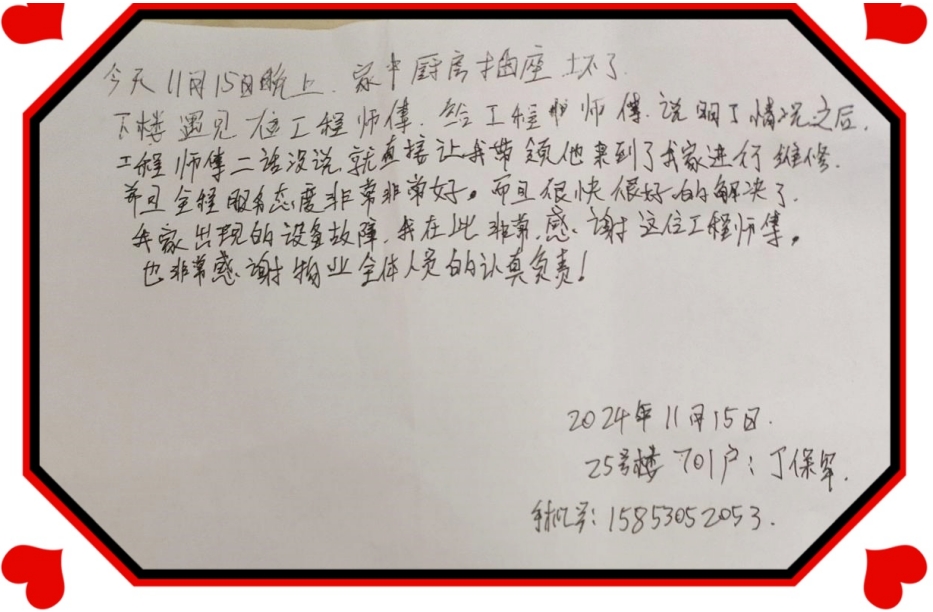 今天11月15日晚上.家中厨房插座坏了.
下楼遇见位工程师傅.给工程师傅.说明了情况之后.
工程师傅二话没说.就直接让我带领他来到了我家进行维修.
并且全程服务态度非常非常好。而且很快很好的解决了.
我家出现的设备故障.我在此非常.感谢这位工程师傅。
也非常感谢物业全体人员的认真负责!
2024年11月15日.
25号楼701户:丁保军.
手机号:15853052053.